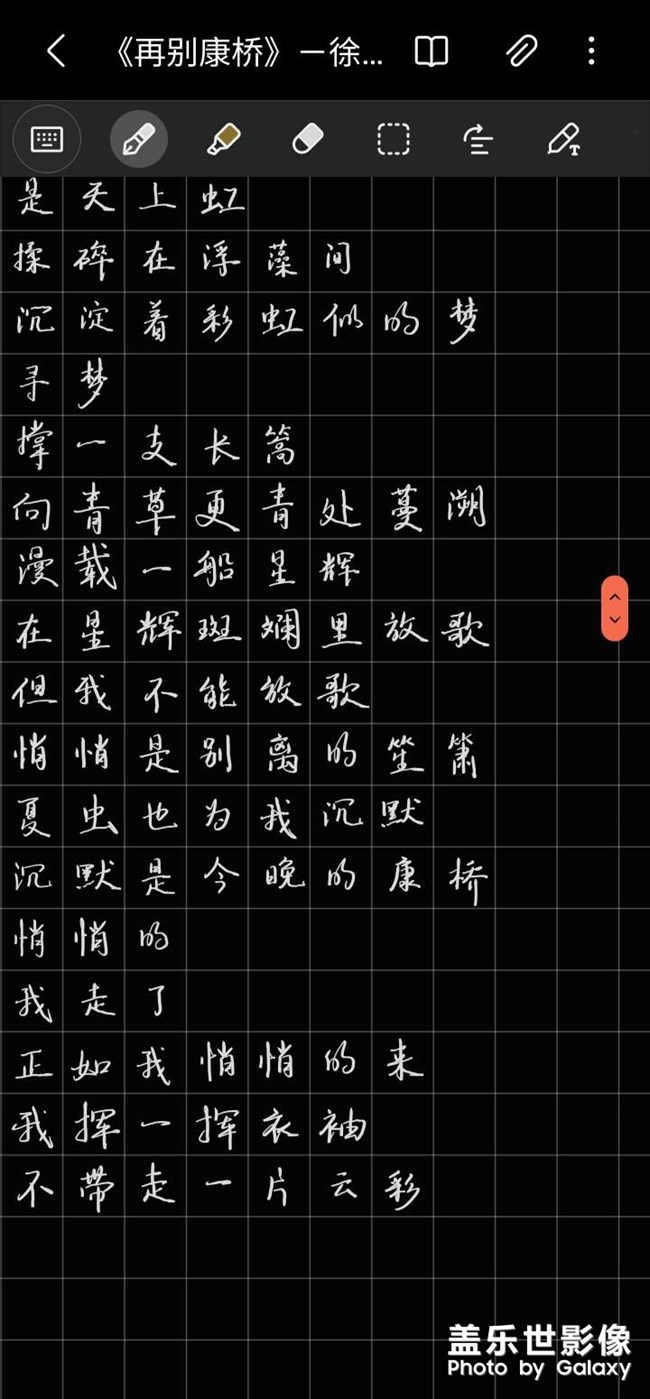 《再别康桥》－徐...
是天上虹
揉碎在浮藻间
沉淀着彩虹似的梦
寻梦
撑一支长篙
向青草更青处蔓溯
漫载一船星辉
在星辉斑斓里放歌
但我不能放歌
悄悄是别离的笙箫
夏虫也为我沉默
沉默是今晚的康桥
悄悄的
我走了
正如我悄悄的来
我挥一挥衣袖
不带走一片云彩
盖乐世影像
Photo by Galaxy